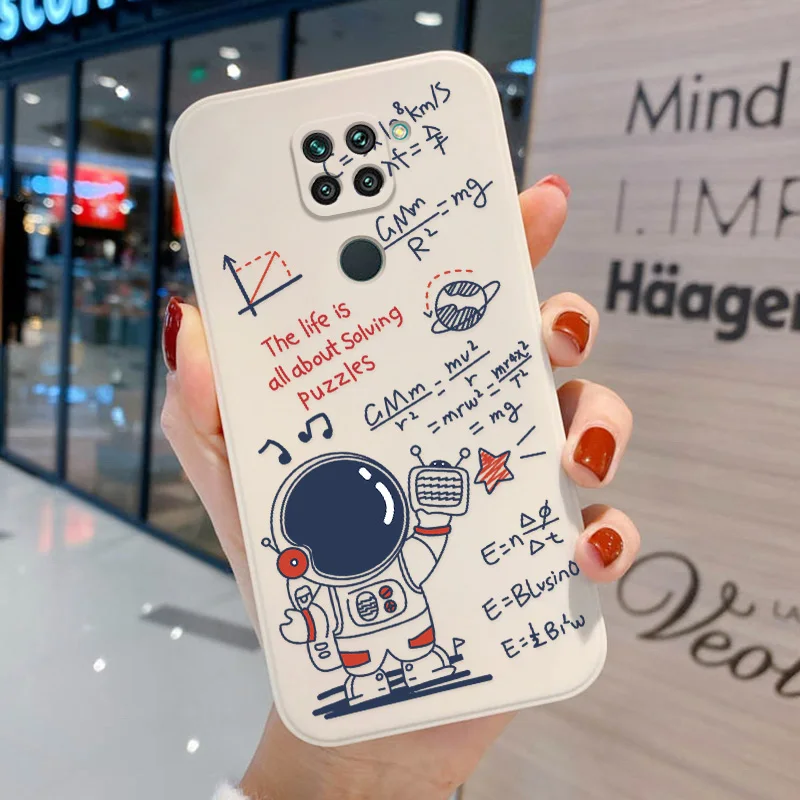 Mind
Häagen
Veot
km/s
λf =
GMm
R² = mg
The life is
all about solving
puzzles
GMm
r² = mv²
r = mr4π²
T²
= mrω² =
= mg
E=n Δϕ
Δt
E=BLvsinθ
E=½Br²w